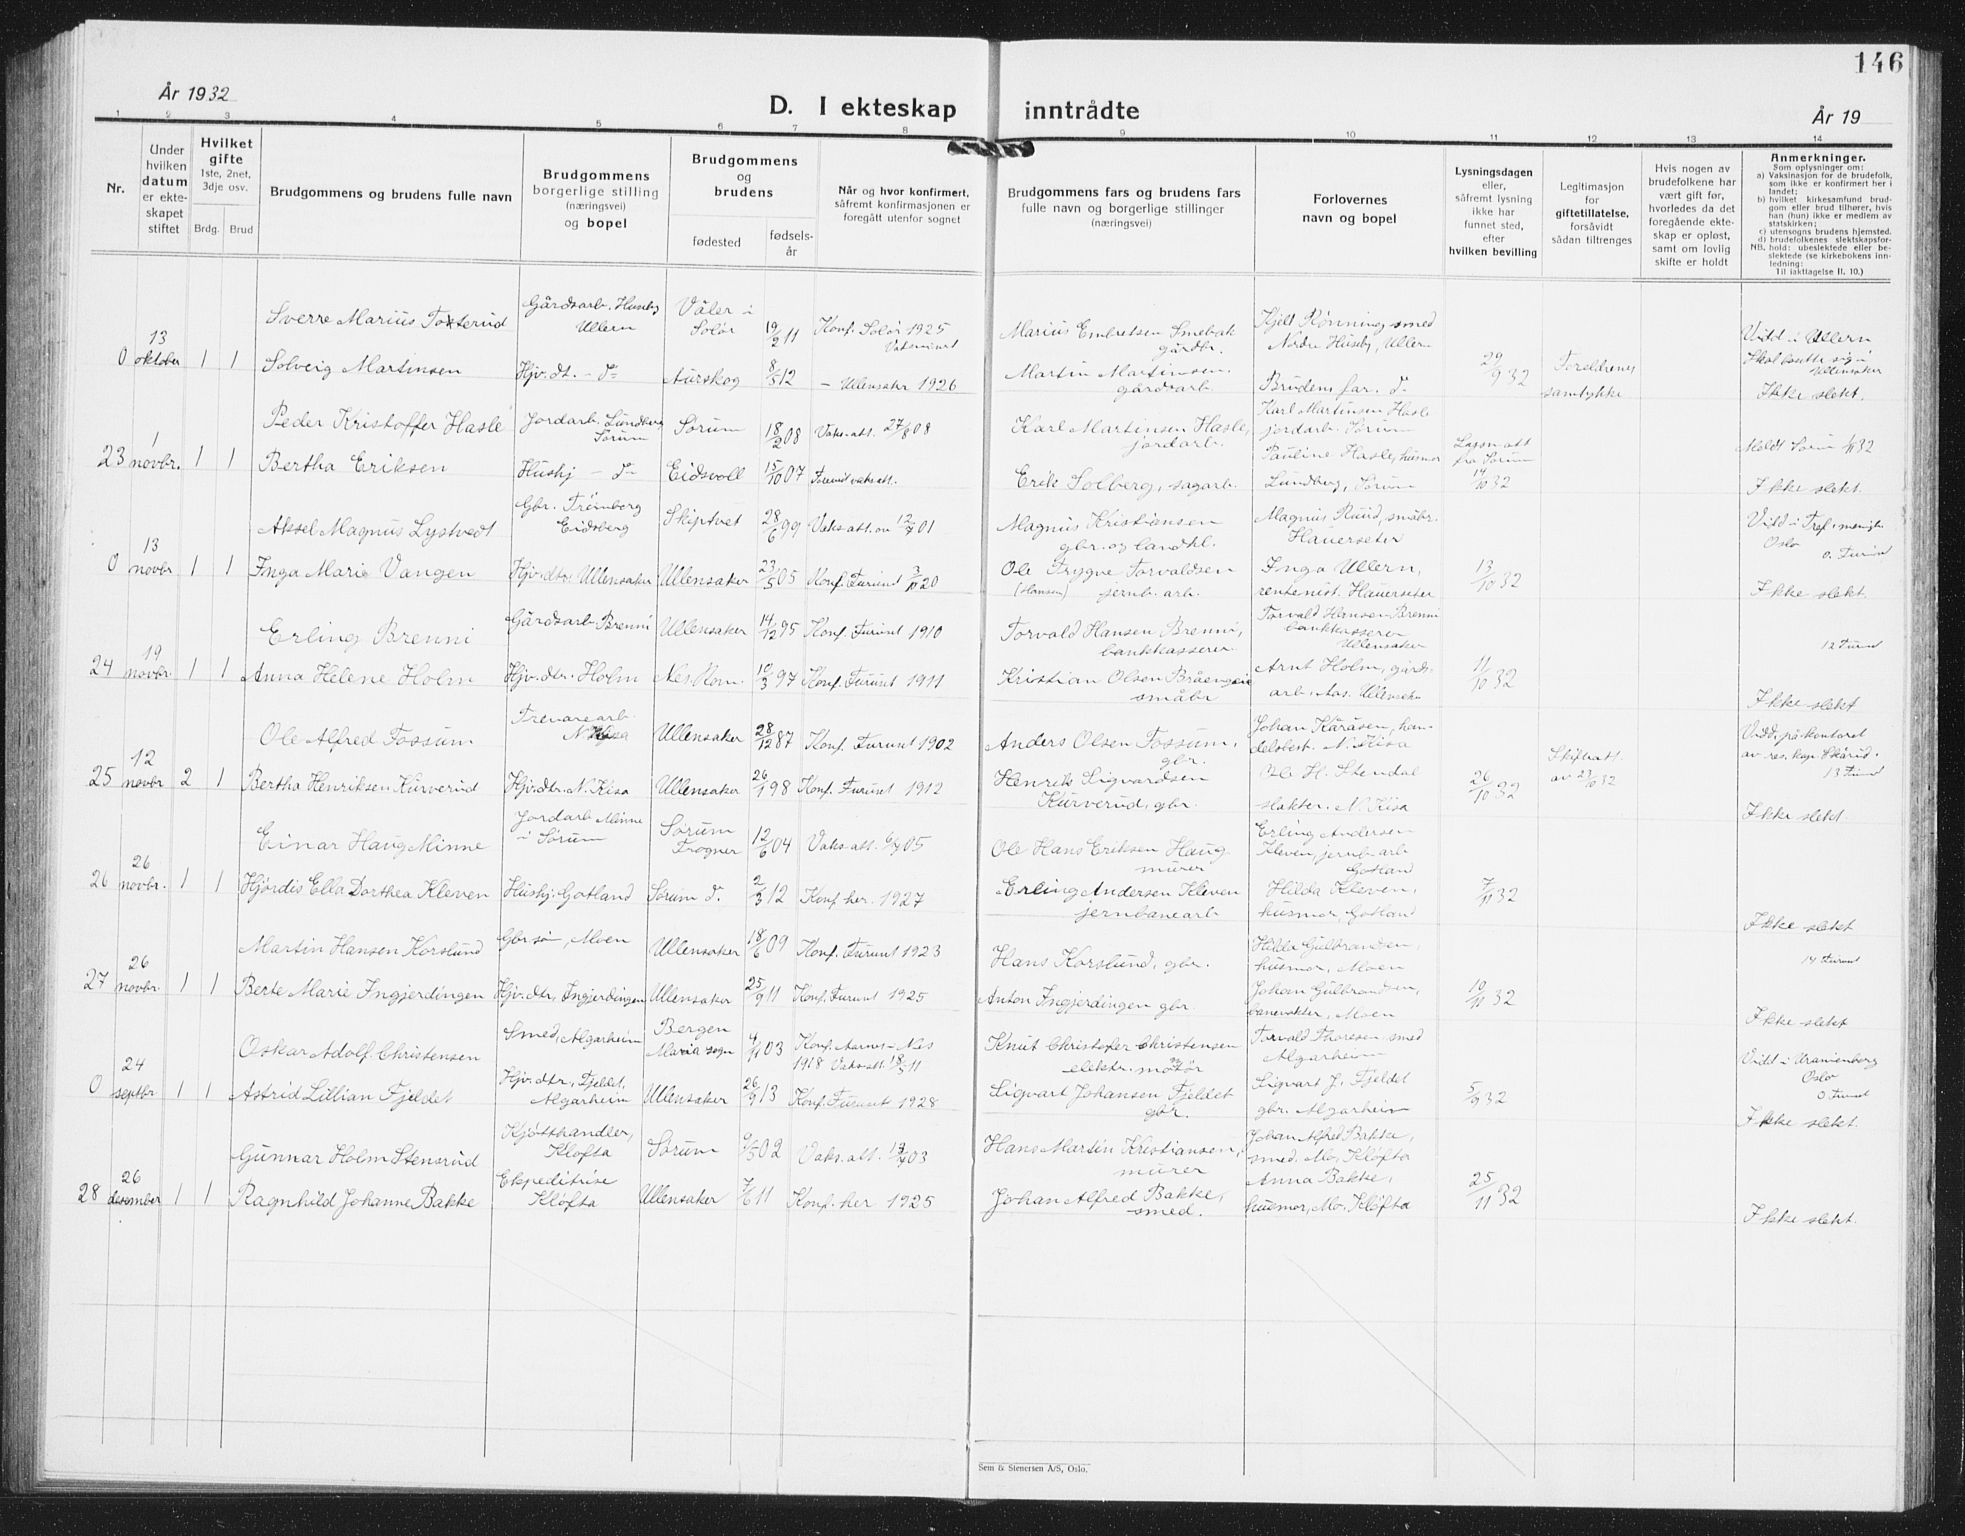 146
År 1932
D. I ekteskap inntrådte
År 19
1 2 3 4 5 6 7 8 9 10 11 12 13 14
Nr.
Under
hvilken
datum
er ekte-
skapet
stiftet
Hvilket
gifte
1ste, 2net,
3dje osv.
Brdg. Brud
Brudgommens og brudens fulle navn
Brudgommens
borgerlige stilling
(næringsvei)
og bopel
Brudgommens
og
brudens
fødested
fødsels-
år
Når og hvor konfirmert,
såfremt konfirmasjonen er
foregått utenfor sognet
Brudgommens fars og brudens fars
fulle navn og borgerlige stillinger
(næringsvei)
Forlovernes
navn og bopel
Lysningsdagen
eller,
såfremt lysning
ikke har
funnet sted,
efter
hvilken bevilling
Legitimasjon
for
giftetillatelse,
forsåvidt
sådan tiltrenges
Hvis nogen av
brudefolkene har
vært gift før,
hvorledes da det
foregående ekte-
skap er opløst,
samt om lovlig
skifte er holdt
Anmerkninger.
Som oplysninger om:
a) Vaksinasjon for de brudefolk,
som ikke er konfirmert her i
landet;
b) hvilket kirkesamfund brud-
gom eller brud tilhører, hvis
han (hun) ikke er medlem av
statskirken;
c) utensogns brudens hjemsted.
d) brudefolkenes slektskapsfor-
hold: ubeslektede eller be-
slektede (se kirkebokens inn-
ledning:
Til iakttagelse II. 10.)
NB.
0 13 oktober 1 1
Sverre Marius Tokterud
Gårdsarb. Huseby
Ullern
Våler i
Solør
19/2 11
Konf. Solør 1925
Marius Embretsen Smebak
gårdbr.
Kjell Rønning, smed
Nordre Huseby, Ullern
29/9 32
Foreldrenes
samtykke
Viid i Ullern
Solveig Martinsen
Hjv. dt. - d=
Aurskog
8/5 12
- Ullensaker 1926
Martin Martinsen,
gårdsarb.
Brudens far. d.
Ullensaker
Ikke slekt.
23 1 novbr. 1 1
Peder Kristoffer Hasle
Jordarb. Lundberg
Sørum
Sørum
18/2 08
Vaks.att. 27/8 08
Karl Martinsen Hasle,
jordarb.
Karl Martinsen Hasle
jordarb. Sørum
Lysn.att
fra Sørum
14/10 32
Bertha Eriksen
Hushj - d=
Eidsvoll
15/10 07
Erik Solberg, sagarb.
Pauline Hasle, husmor
Lundberg, Sørum
Ikke slekt.
0 13 novbr. 1 1
Aksel Magnus Lystvedt
Gbr. Trømborg
Eidsberg
Skiptvet
28/6 99
Vaks.att. av 12/7 01
Magnus Kristiansen
gbr. og landhl.
Magnus Ruud, småbr.
Hauerseter
13/10 32
Oslo
Inga Marie Vangen
Hjv. dtr. Ullensaker
Ullensaker
23/5 05
Konf. Furuset 3/10 20
Ole Trygve Torvaldsen
(Hansen) jernb. arb.
Inga Ullern,
rentenist. Hauerseter
Ikke slekt.
24 19 novbr. 1 1
Erling Brenni
Gårdsarb. Brenni
Ullensaker
14/12 95
Konf. Furuset 1910
Torvald Hansen Brenni,
bankkasserer
Torvald Hansen Brenni
bankkasserer
Ullensaker
11/10 32
Anna Helene Holm
Hjv. dtr. Holm
Nes, Rom.
10/3 97
Konf. Furuset 1911
Kristian Olsen Bråengeie
småbr
Arnt Holm, gårds-
arb. Aas. Ullensaker
Ikke slekt
25 12 novbr 2 1
Ole Alfred Fossum
Trevarearb.
N. Kisa
Ullensaker
28/12 87
Konf. Furuset 1902
Anders Olsen Fossum,
gbr.
Johan Kåråsen, han-
delsbest. N. Kisa
26/10 32
Skifteatt.
av 23/10 32
Viid. på kontoret
av res. kap. Skårud.
Bertha Henriksen Kurverud
Hjv. dtr. N. Kisa
Ullensaker
26/1 98
Konf. Furuset 1912
Henrik Sigvardsen
Kurverud, gbr.
Ole H. Stendal
slakter. N. Kisa
Ikke slekt.
26 26 novbr. 1 1
Einar Haug Minne
Jordarb Minne
i Sørum
Sørum
Frogner
12/6 04
Vaks.att. 6/7 05
Ole Hans Eriksen Haug
murer
Erling Andersen
Kleven, jernb. arb
Gotland
7/11 32
Hjørdis Ella Dorthea Kleven
Hushj. Gotland
Sørum d.
2/3 12
Konf. her. 1927
Erling Andersen Kleven
jernbanearb
Hilda Kleven,
husmor, Gotland
Ikke slekt
27 26 novbr 1 1
Martin Hansen Korslund
Gbr. søn, Moen
Ullensaker
18/6 09
Konf. Furuset 1923
Hans Korslund, gbr.
Hilda Gulbrandsen,
husmor, Moen
10/11 32
Berte Marie Ingjerdingen
Hjv. dtr, Ingjerdingen
Ullensaker
25/9 11
Konf. Furuset 1925
Anton Ingjerdingen gbr
Johan Gulbrandsen,
banevokter, Moen
Ikke slekt
0 24 septbr 1 1
Oskar Adolf Christensen
Smed, Algarheim
Bergen
Maria sogn
4/11 03
Konf. Aarnes - Nes
1918 Vaks.att. 18/5 11
Knut Christofer Christensen
elektr. motør
Torvald Thoresen, smed
Algarheim
5/9 32
Viid i Uranienborg
Oslo
Astrid Lillian Fjeldet
Hjv. dtr, Fjeldet,
Algarheim
Ullensaker
26/9 13
Konf. Furuset 1928
Sigvart Johansen Fjeldet
gbr.
Sigvart J. Fjeldet
gbr. Algarheim
Ikke slekt.
28 26 desember 1 1
Gunnar Holm Stensrud
Kjøtthandler,
Kløfta
Sørum
9/5 02
Vaks.att. 19/7 03
Hans Martin Kristiansen,
murer
Johan Alfred Bakke,
smed. Mo, Kløfta
25/11 32
Ragnhild Johanne Bakke
Ekspeditrise
Kløfta
Ullensaker
7/6 11
Konf. her 1925
Johan Alfred Bakke,
smed.
Anna Bakke,
husmor, Mo, Kløfta
Ikke slekt.
Sem & Stenersen A/S, Oslo.